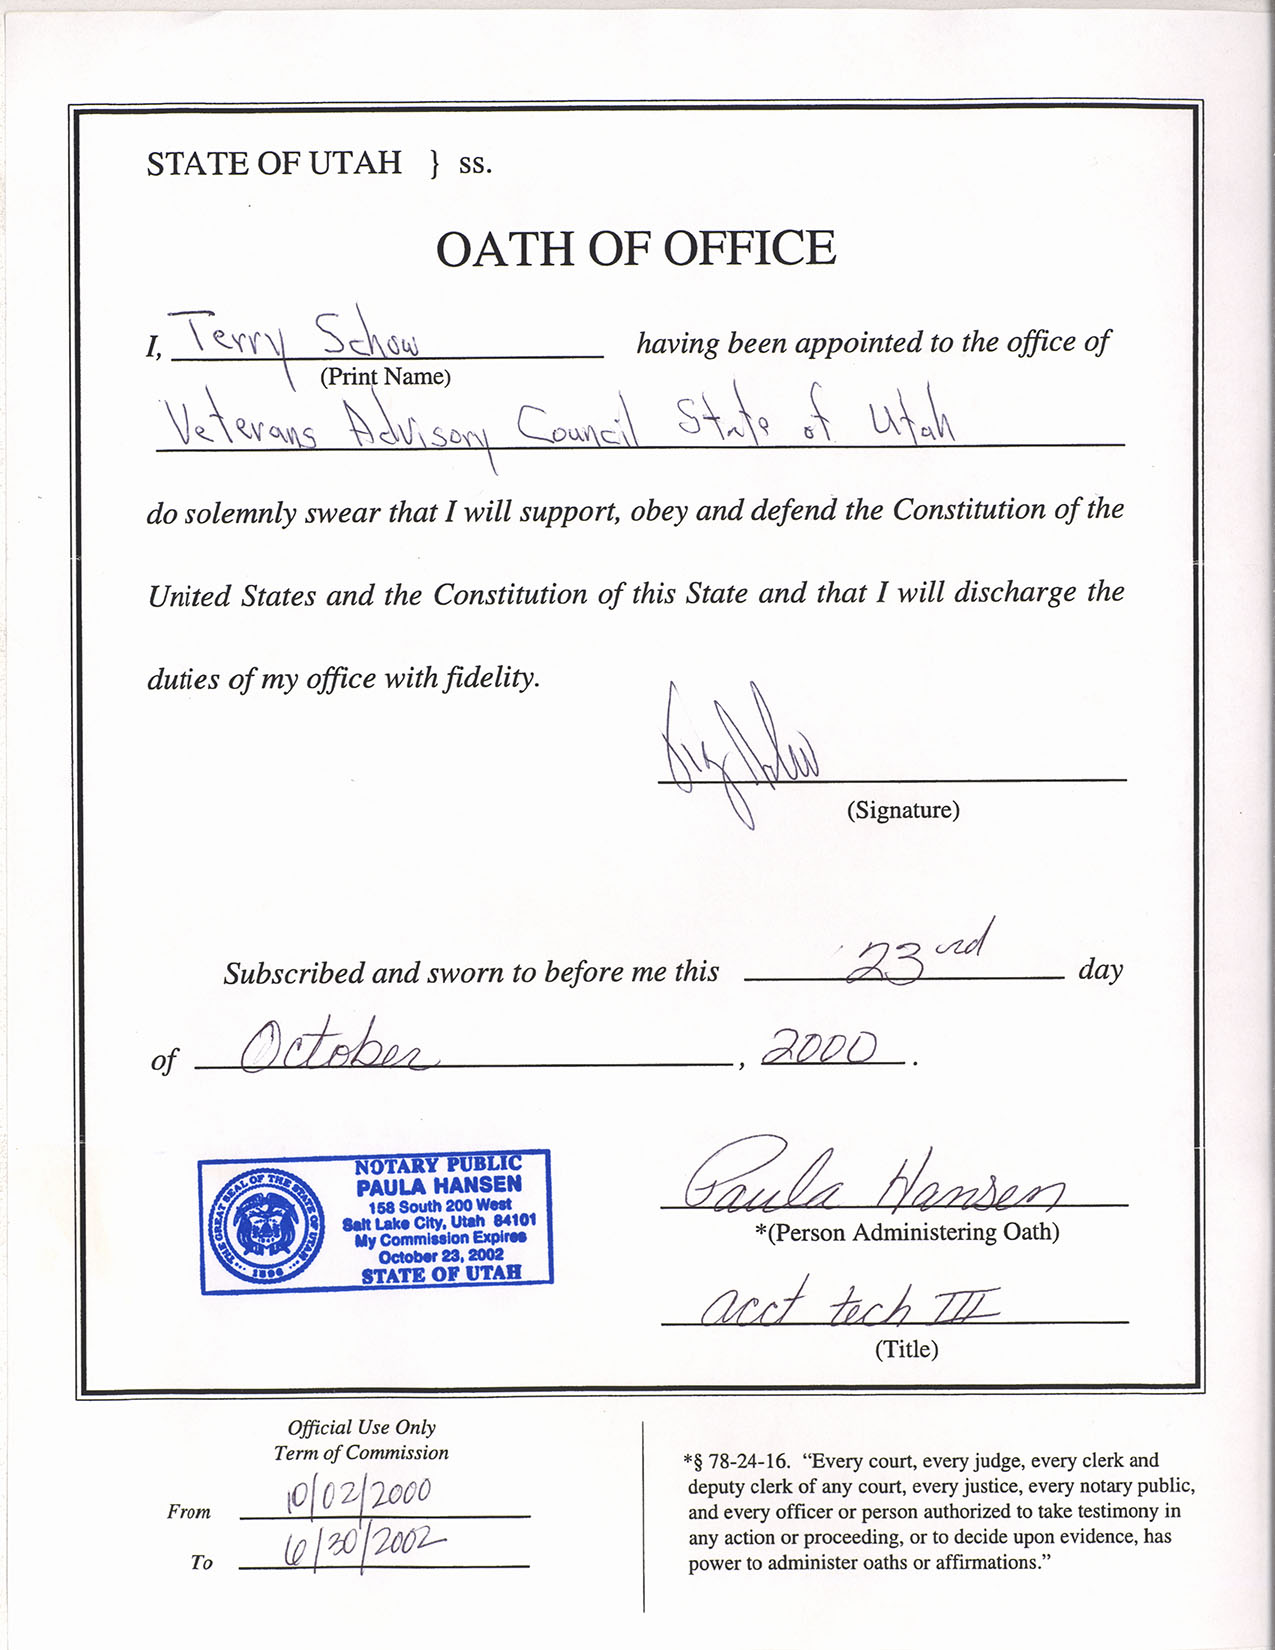 STATE OF UTAH } ss.
OATH OF OFFICE
I, Terry Schow having been appointed to the office of
(Print Name)
Veterans Advisory Council State of Utah
do solemnly swear that I will support, obey and defend the Constitution of the
United States and the Constitution of this State and that I will discharge the
duties of my office with fidelity.
(Signature)
Subscribed and sworn to before me this 23rd day
of October, 2000.
NOTARY PUBLIC
PAULA HANSEN
158 South 200 West
Salt Lake City, Utah 84101
My Commission Expires
October 23, 2002
STATE OF UTAH
THE GREAT SEAL OF THE STATE OF UTAH
1896
Paula Hansen
*(Person Administering Oath)
acct tech III
(Title)
Official Use Only
Term of Commission
From 10/02/2000
To 6/30/2002
*§ 78-24-16. “Every court, every judge, every clerk and
deputy clerk of any court, every justice, every notary public,
and every officer or person authorized to take testimony in
any action or proceeding, or to decide upon evidence, has
power to administer oaths or affirmations.”